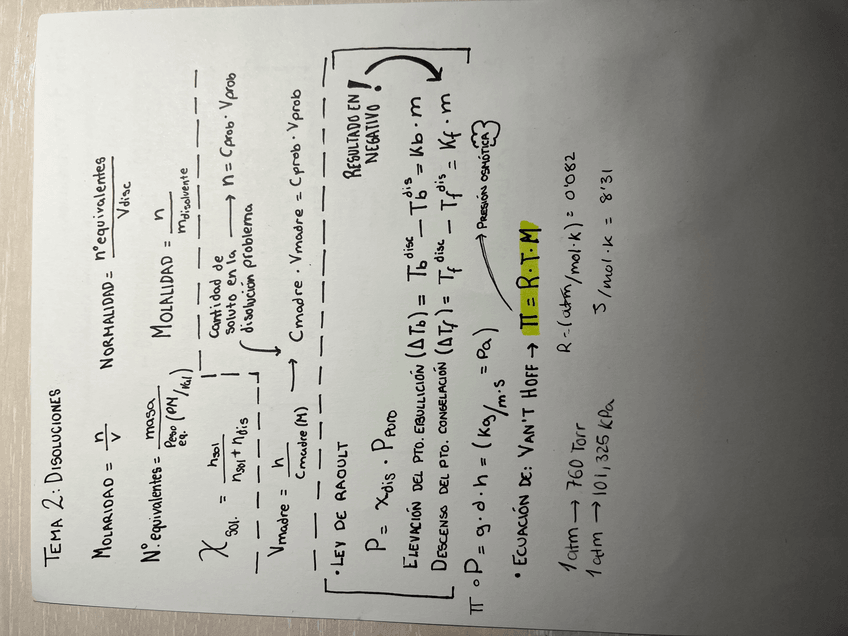 TEMA 2: DISOLUCIONES
MOLARIDAD = n/V NORMALIDAD = nº equivalentes/Vdisc
Nº equivalentes = masa/Peso eq. (PM/Val) MOLALIDAD = n/mdisolvente
χsol. = nsol/nsol + ndis
Cantidad de soluto en la disolución problema → n = Cprob · Vprob
Vmadre = n/Cmadre (M) → Cmadre · Vmadre = Cprob · Vprob
· LEY DE RAOULT
P = xdis · Ppuro
RESULTADO EN NEGATIVO!
ELEVACIÓN DEL PTO. EBULLICIÓN (ΔTb) = Tb disc − Tb dis = Kb · m
DESCENSO DEL PTO. CONGELACIÓN (ΔTf) = Tf disc − Tf dis = Kf · m
π o P = g · d · h = (Kg/m·s = Pa) → PRESIÓN OSMÓTICA
· ECUACIÓN DE: VAN'T HOFF → π = R·T·M
1 atm → 760 Torr R = (atm/mol·K) = 0'082
1 atm → 101,325 KPa J/mol·K = 8'31